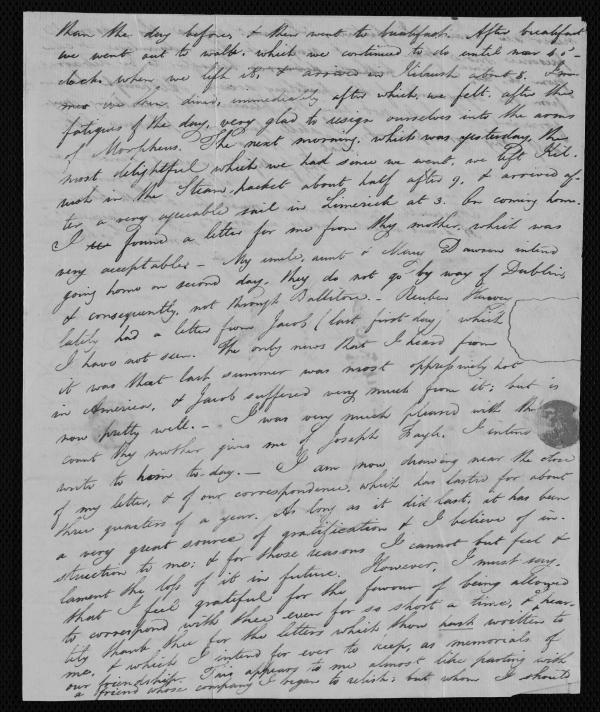 than the day before, & then went to breakfast. After breakfast
we went out to walk, which we continued to do until near 4 o'-
clock when we left it, & arrived in Kilrush about 5.
we then dined, immediately after which, we felt, after the
fatigues of the day, very glad to resign ourselves into the arms
of Morpheus. The next morning, which was yesterday, the
most delightful which we had since we went, we left Kil-
rush in the Steam-packet about half after 9, & arrived af-
ter a very agreeable sail in Limerick at 3. On coming home
I found a letter for me from thy mother, which was
very acceptable. - My uncle, aunt & Mary Dawson intend
going home on second day, they do not go by way of Dublin,
& consequently, not through Ballitore. - Reuben Harvey
lately had a letter from Jacob (last first-day) which
I have not seen. The only news that I heard from
it was that last summer was most oppressively hot
in America, & Jacob suffered very much from it; but is
now pretty well. - I was very much pleased with the
count thy mother gives me of Joseph Fayle. I intend
write to him to-day. - I am now drawing near the close
of my letter, & of our correspondence, which has lasted for about
three quarters of a year. As long as it did last, it has been
a very great source of gratification & I believe of in-
struction to me; & for those reasons I cannot but feel &
lament the loss of it in future. However, I must say,
that I feel grateful for the favour of being allowed
to correspond with thee even for so short a time, & hear-
tily thank thee for the letters which thou hast written to
me, & which I intend for ever to keep, as memorials of
our friendship. This appears to me almost like parting with
a friend whose company I began to relish; but whom I should